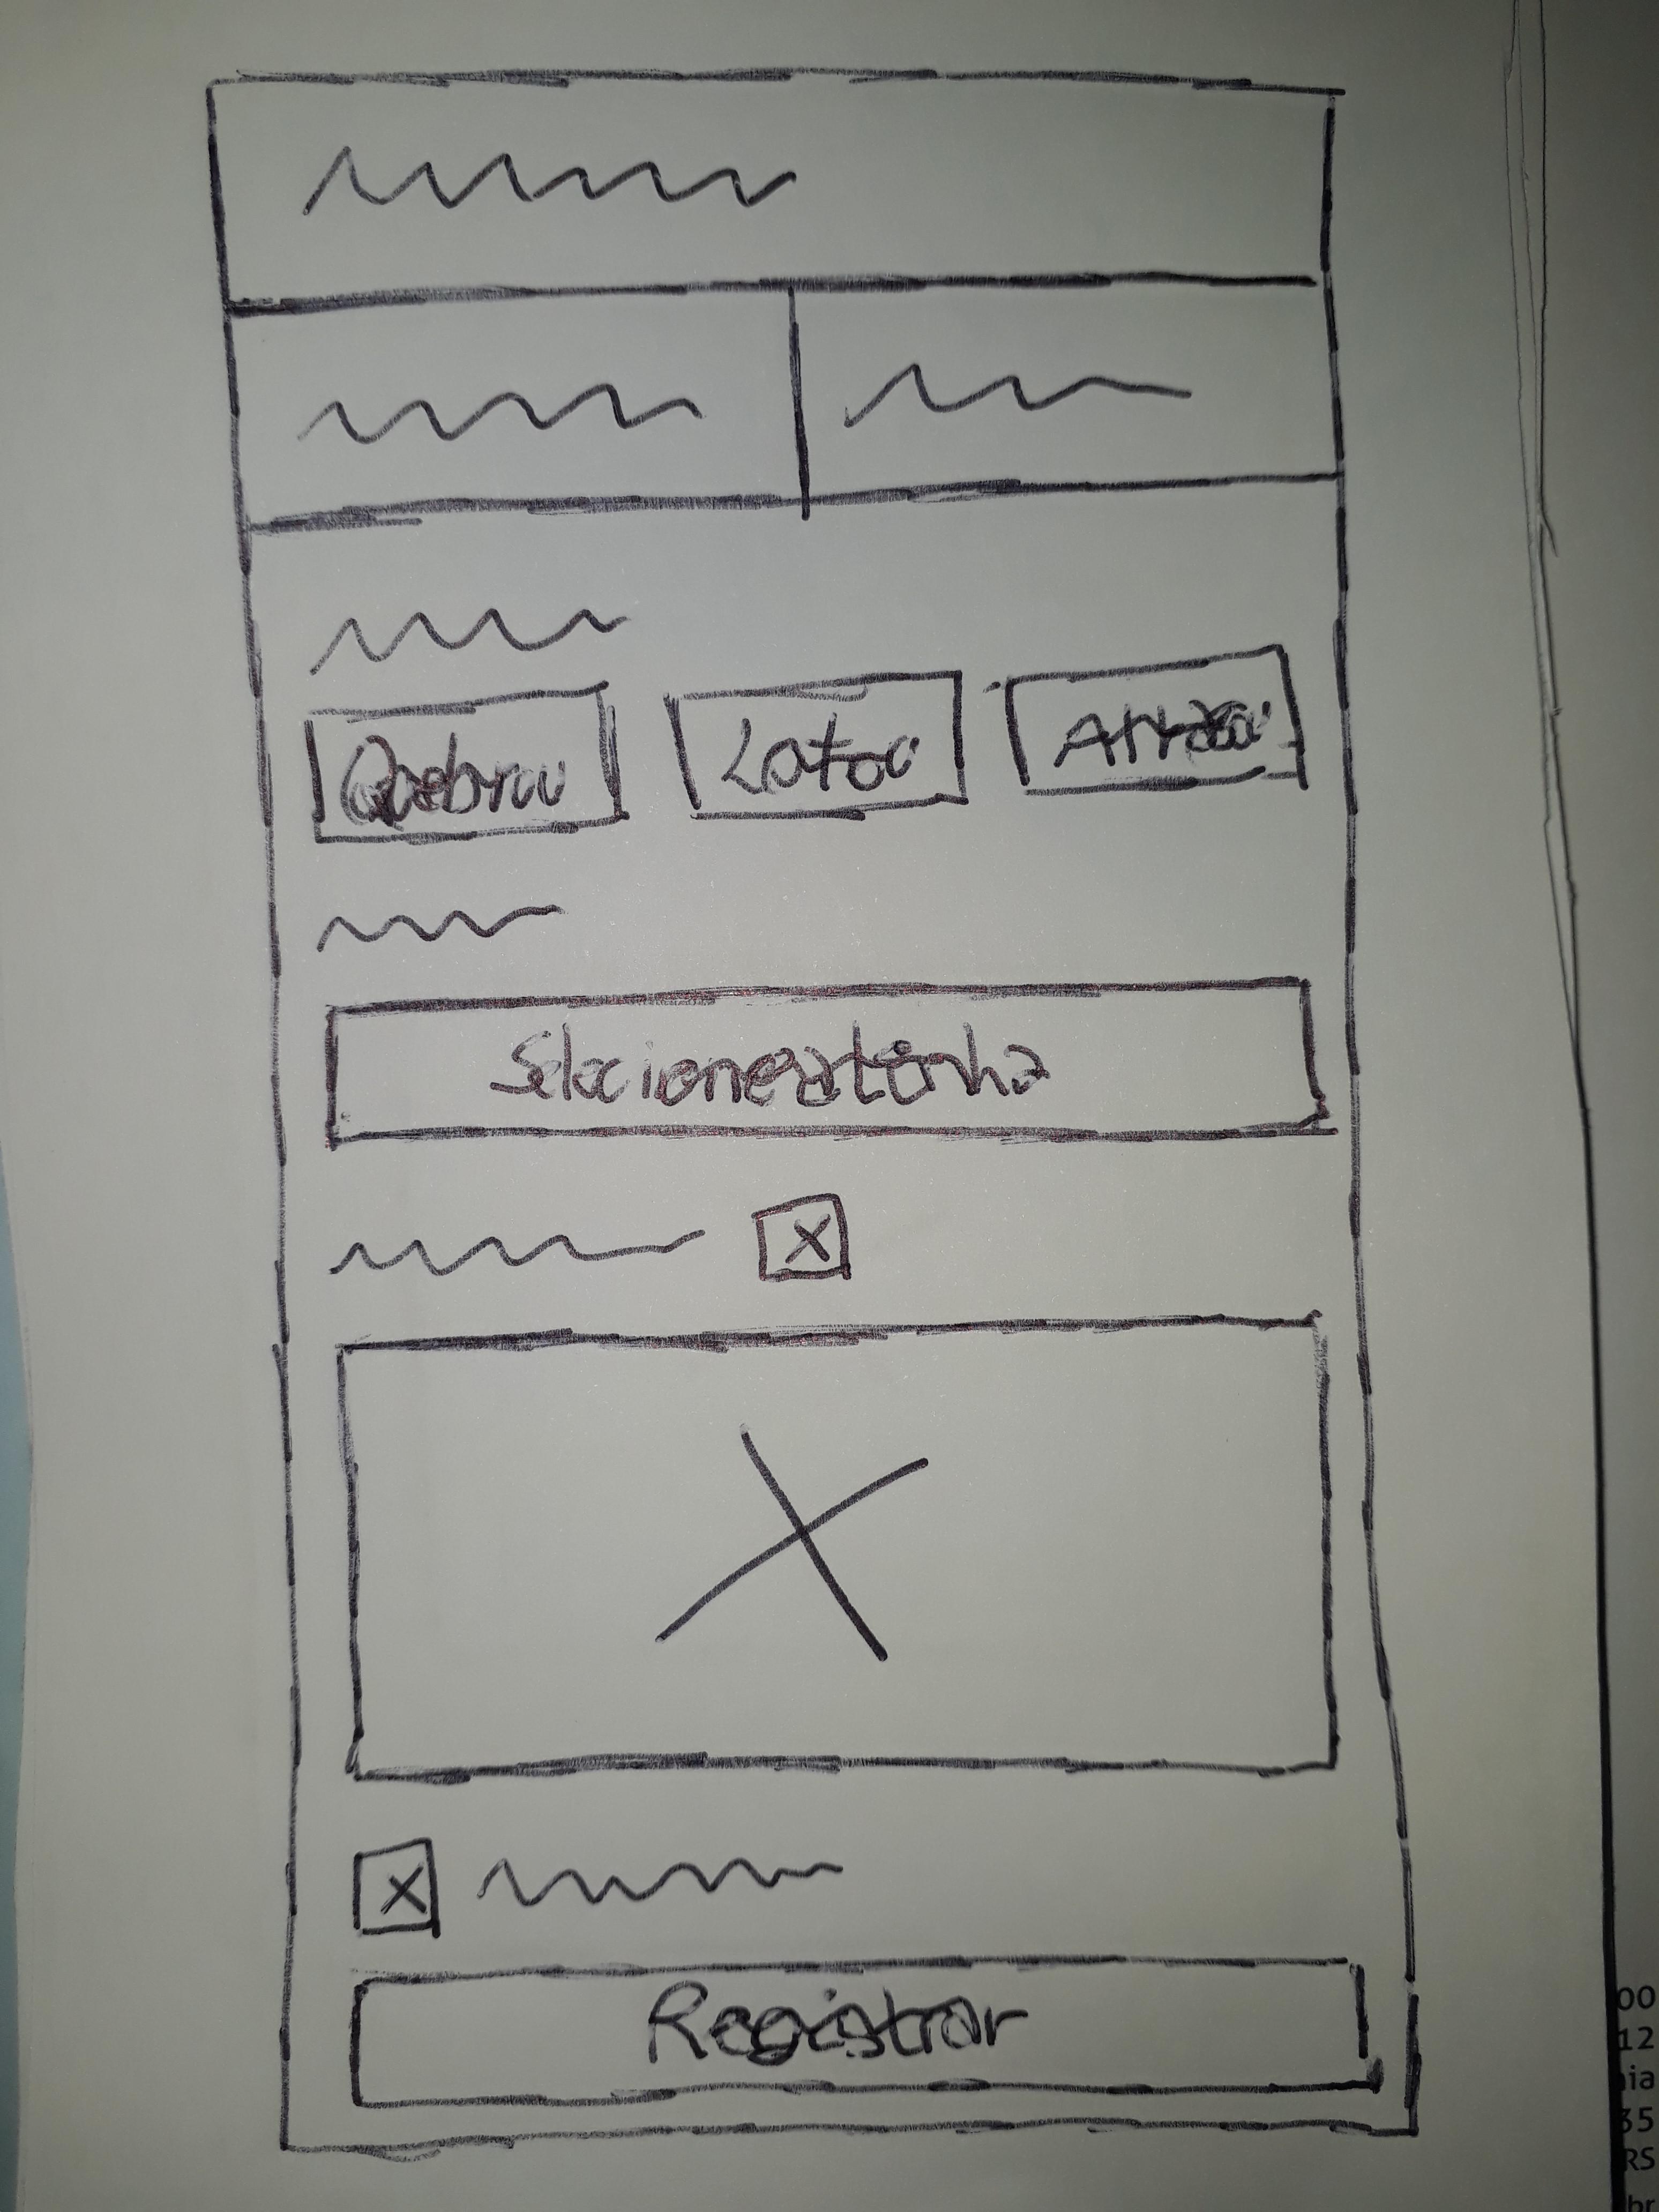 Quebrou Lotou Atrasou
Selecione a linha
X
X
Registrar
00
12
nia
35
RS
br